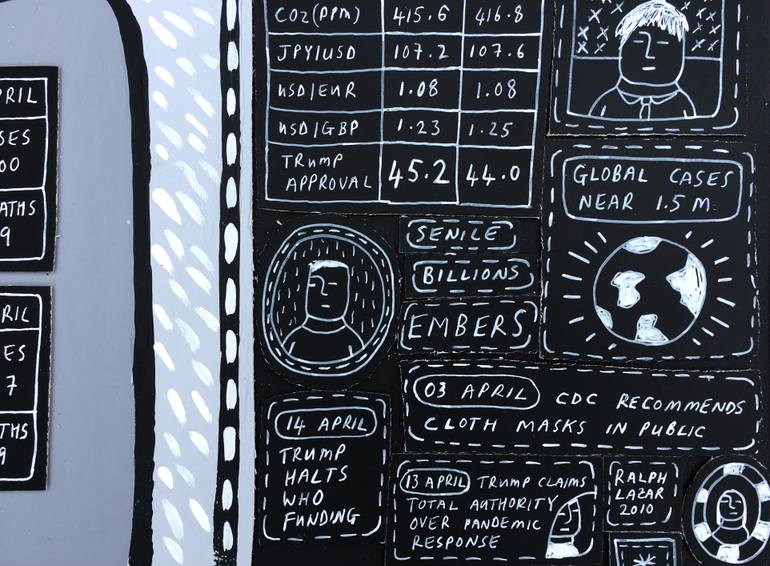 PRIL
SES
00
ATHS
9
RIL
ES
7
THS
9
CO2(PPM) 415.6 416.8
JPY|USD 107.2 107.6
USD|EUR 1.08 1.08
USD|GBP 1.23 1.25
TRUMP APPROVAL 45.2 44.0
GLOBAL CASES
NEAR 1.5 M
SENILE
BILLIONS
EMBERS
03 APRIL CDC RECOMMENDS
CLOTH MASKS IN PUBLIC
14 APRIL
TRUMP
HALTS
WHO
FUNDING
13 APRIL TRUMP CLAIMS
TOTAL AUTHORITY
OVER PANDEMIC
RESPONSE
RALPH
LAZAR
2010